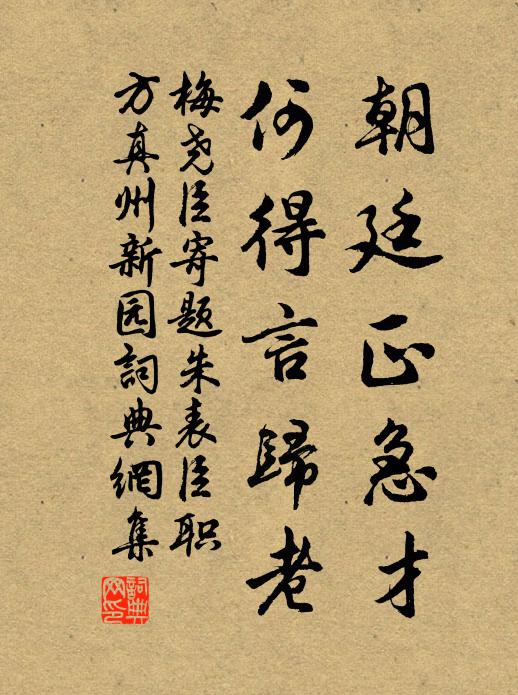 朝廷正急才
何得言歸老
梅尧臣寄题朱表臣职
方真州新园詞典網集
詞典网印